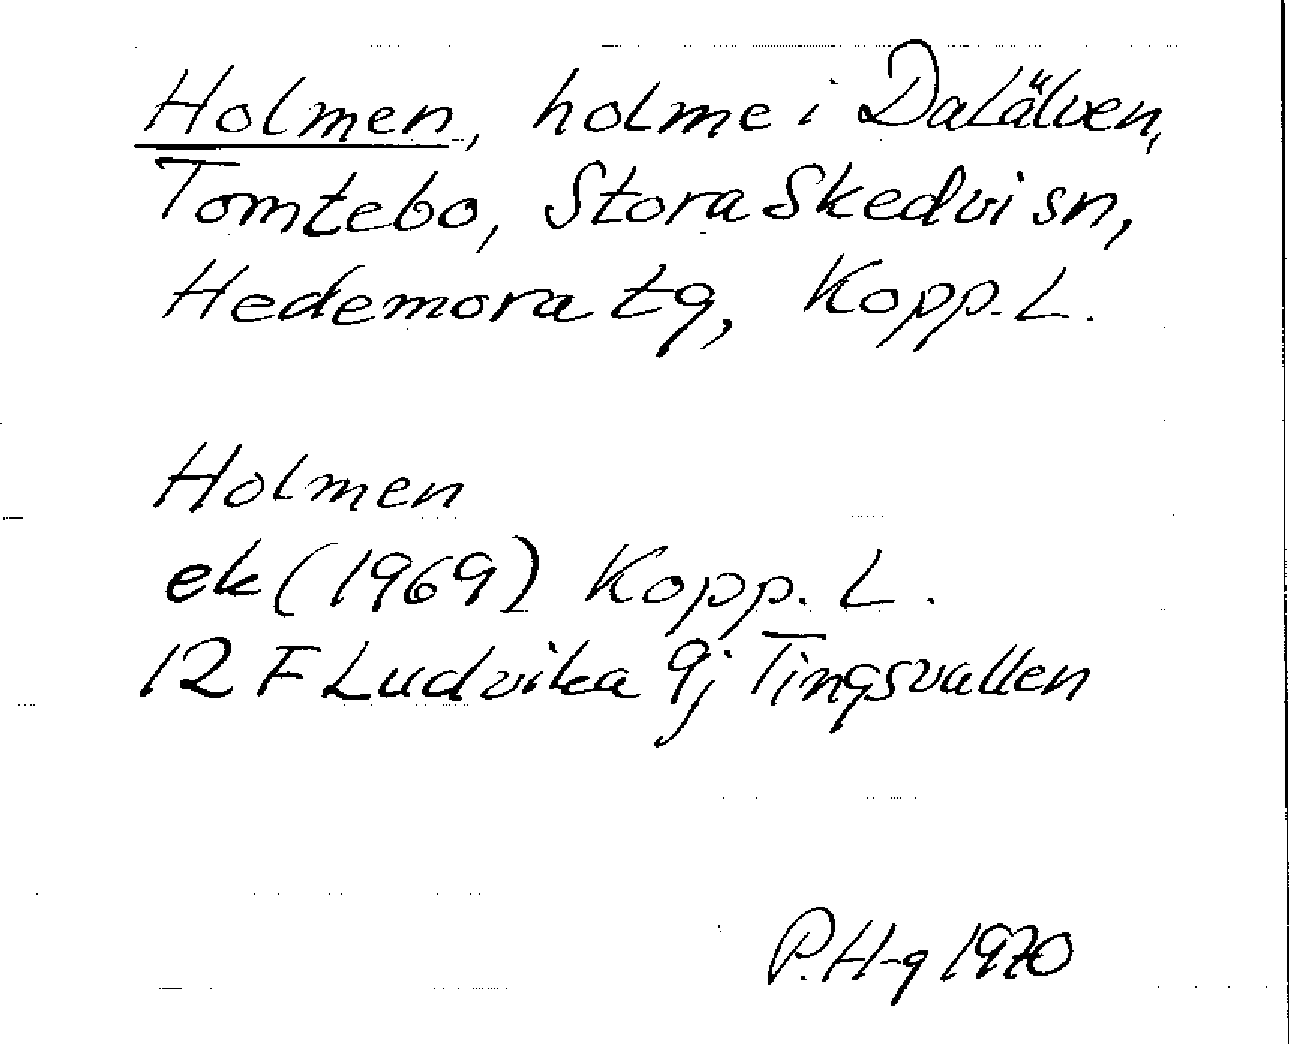 Holmen, holme i Dalälven,
Tomtebo, Stora Skedvi sn,
Hedemora tg, Kopp. L.
Holmen
ek (1969) Kopp. L.
12 F Ludvika 9j Tingsvallen
P. H-g 1970